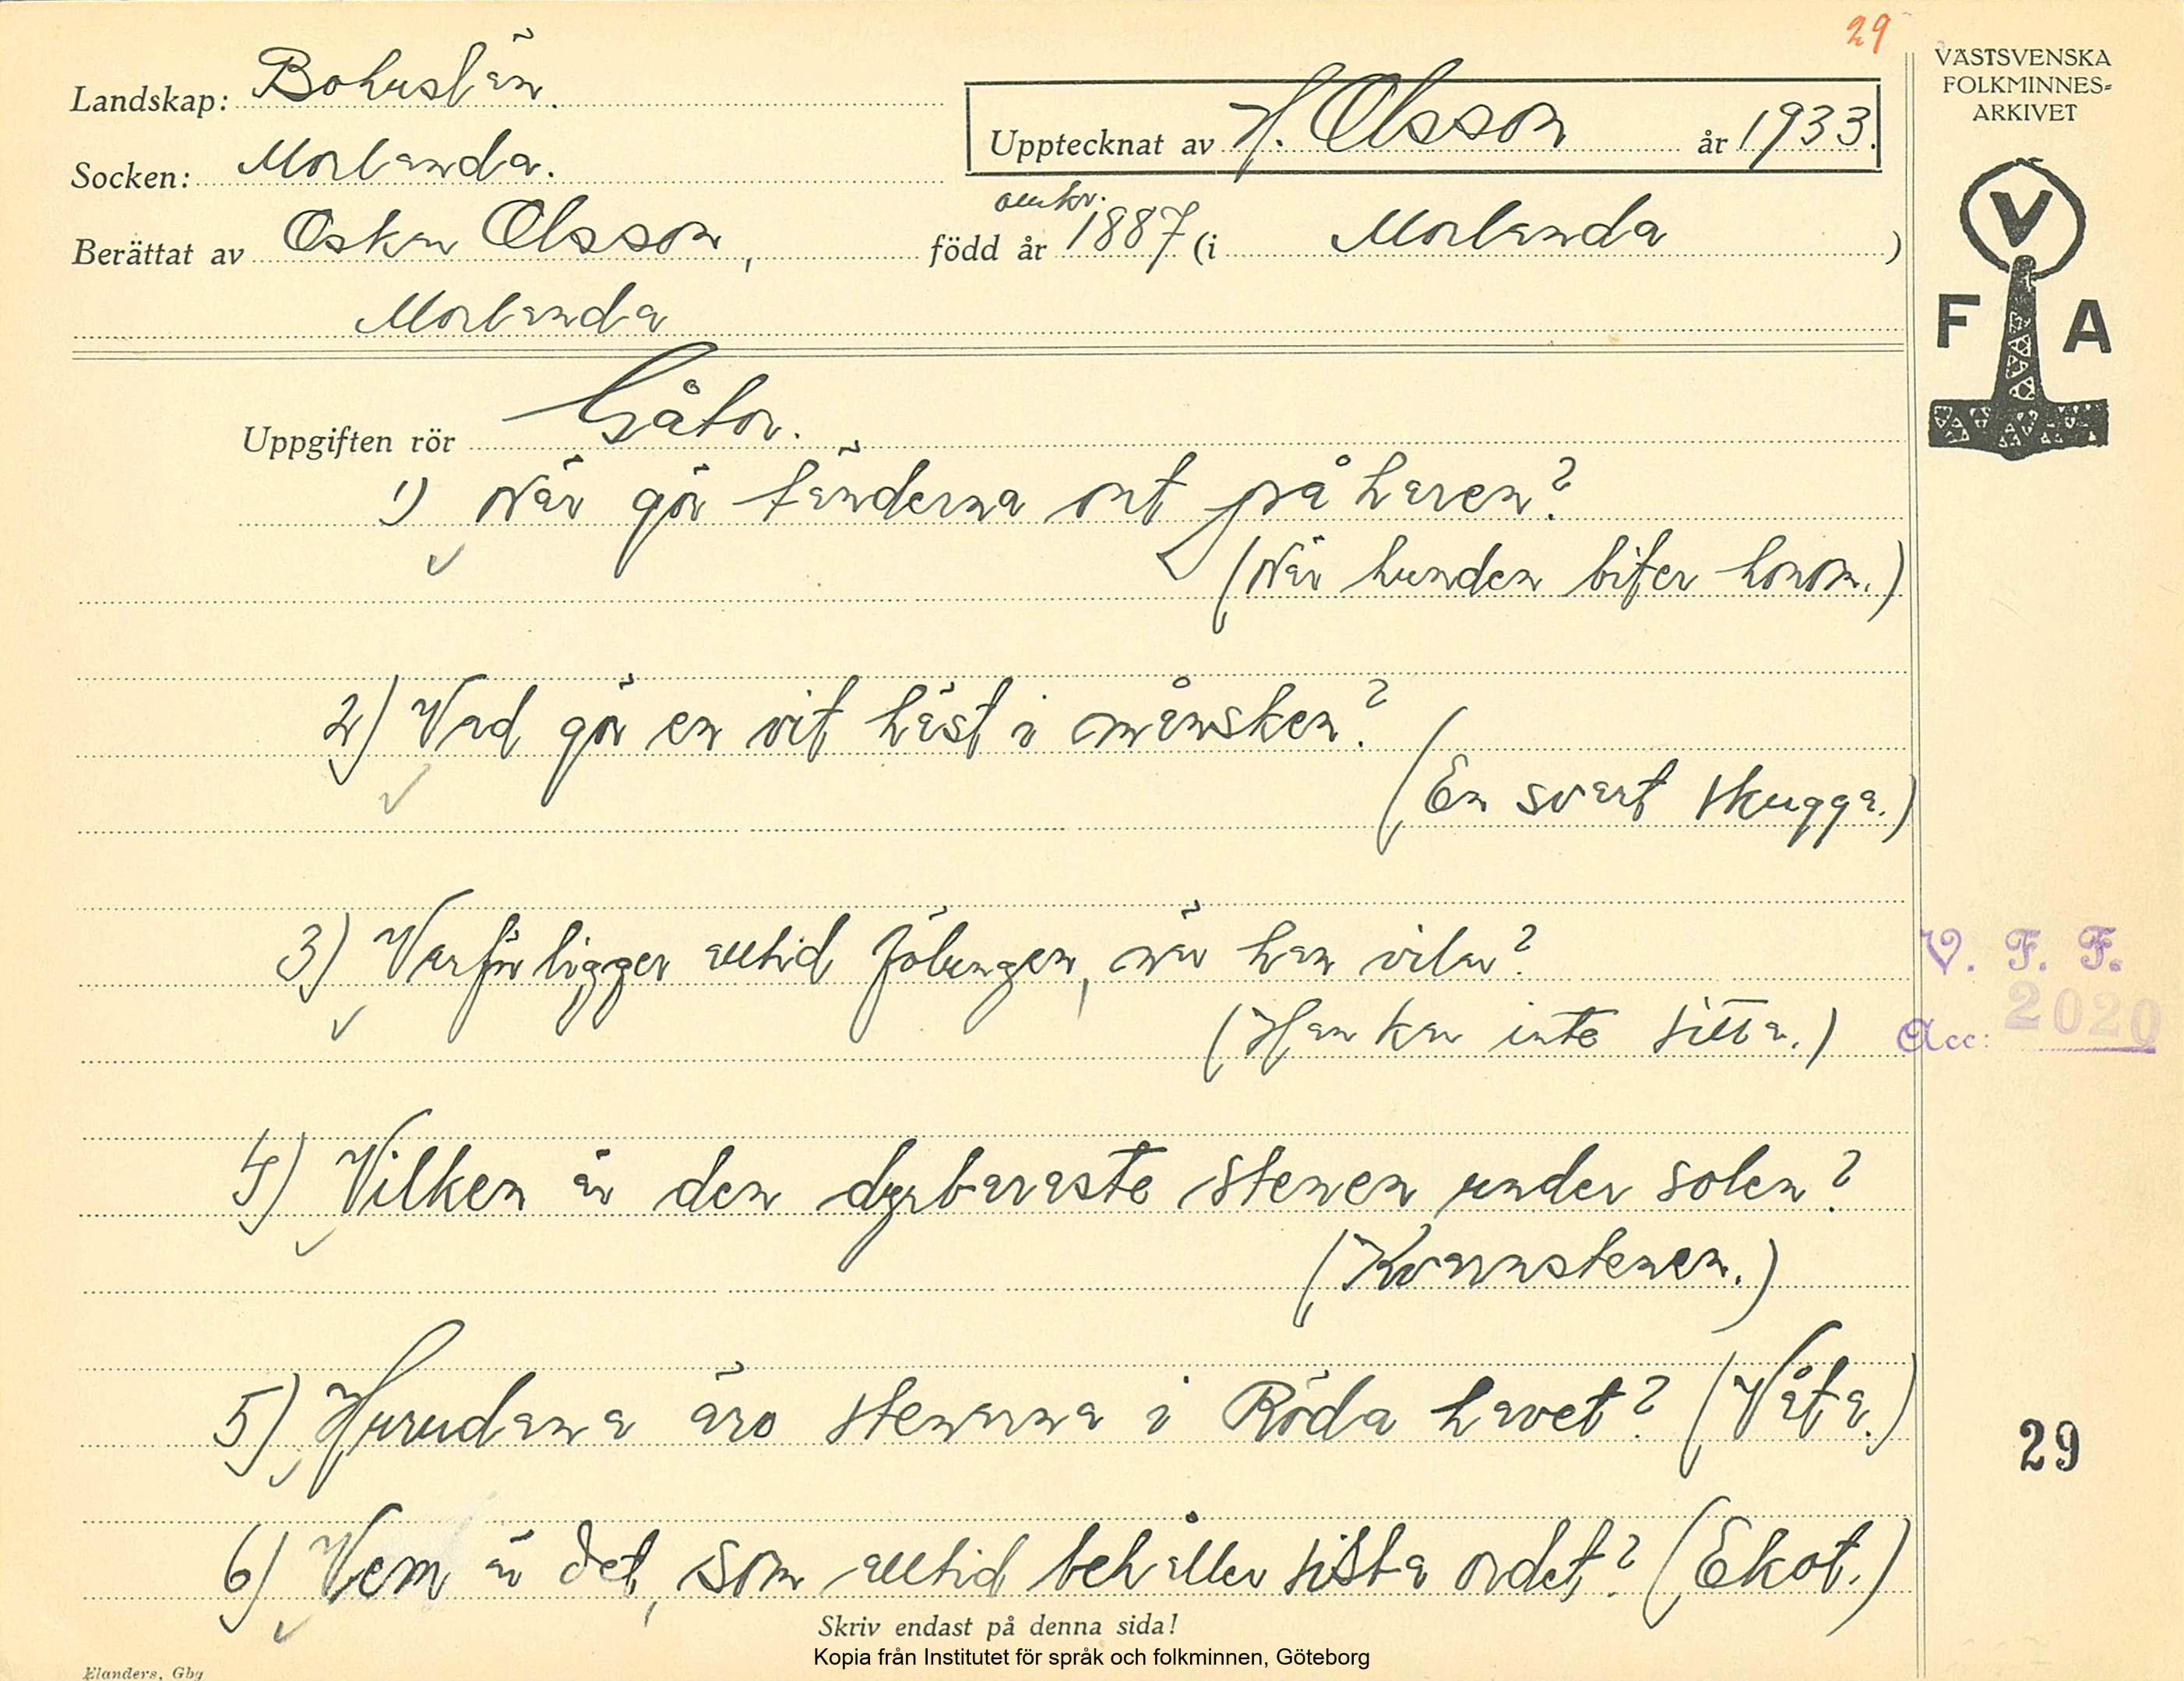 29
VÄSTSVENSKA
FOLKMINNES-
ARKIVET
Landskap: Bohuslän.
Upptecknat av H. Olsson år 1933.
Socken: Morlanda.
omkr.
Berättat av Oskar Olsson, född år 1887 (i Morlanda)
Morlanda
V
F A
Uppgiften rör Gåtor.
1) När gör tänderna ont på haren?
(När hunden biter honom.)
2) Vad gör en vit häst i månsken?
(En svart skugga.)
3) Varför ligger alltid fölungen, när han vilar?
(Han kan inte sitta.)
V. F. F.
Acc: 2020
4) Vilken är den dyrbaraste stenen under solen?
(Kvarnstenen.)
5) Hurudana äro stenarna i Röda havet? (Våta.)
29
6) Vem är det, som alltid behåller sista ordet? (Ekot.)
Skriv endast på denna sida!
Kopia från Institutet för språk och folkminnen, Göteborg
Elanders, Gbg